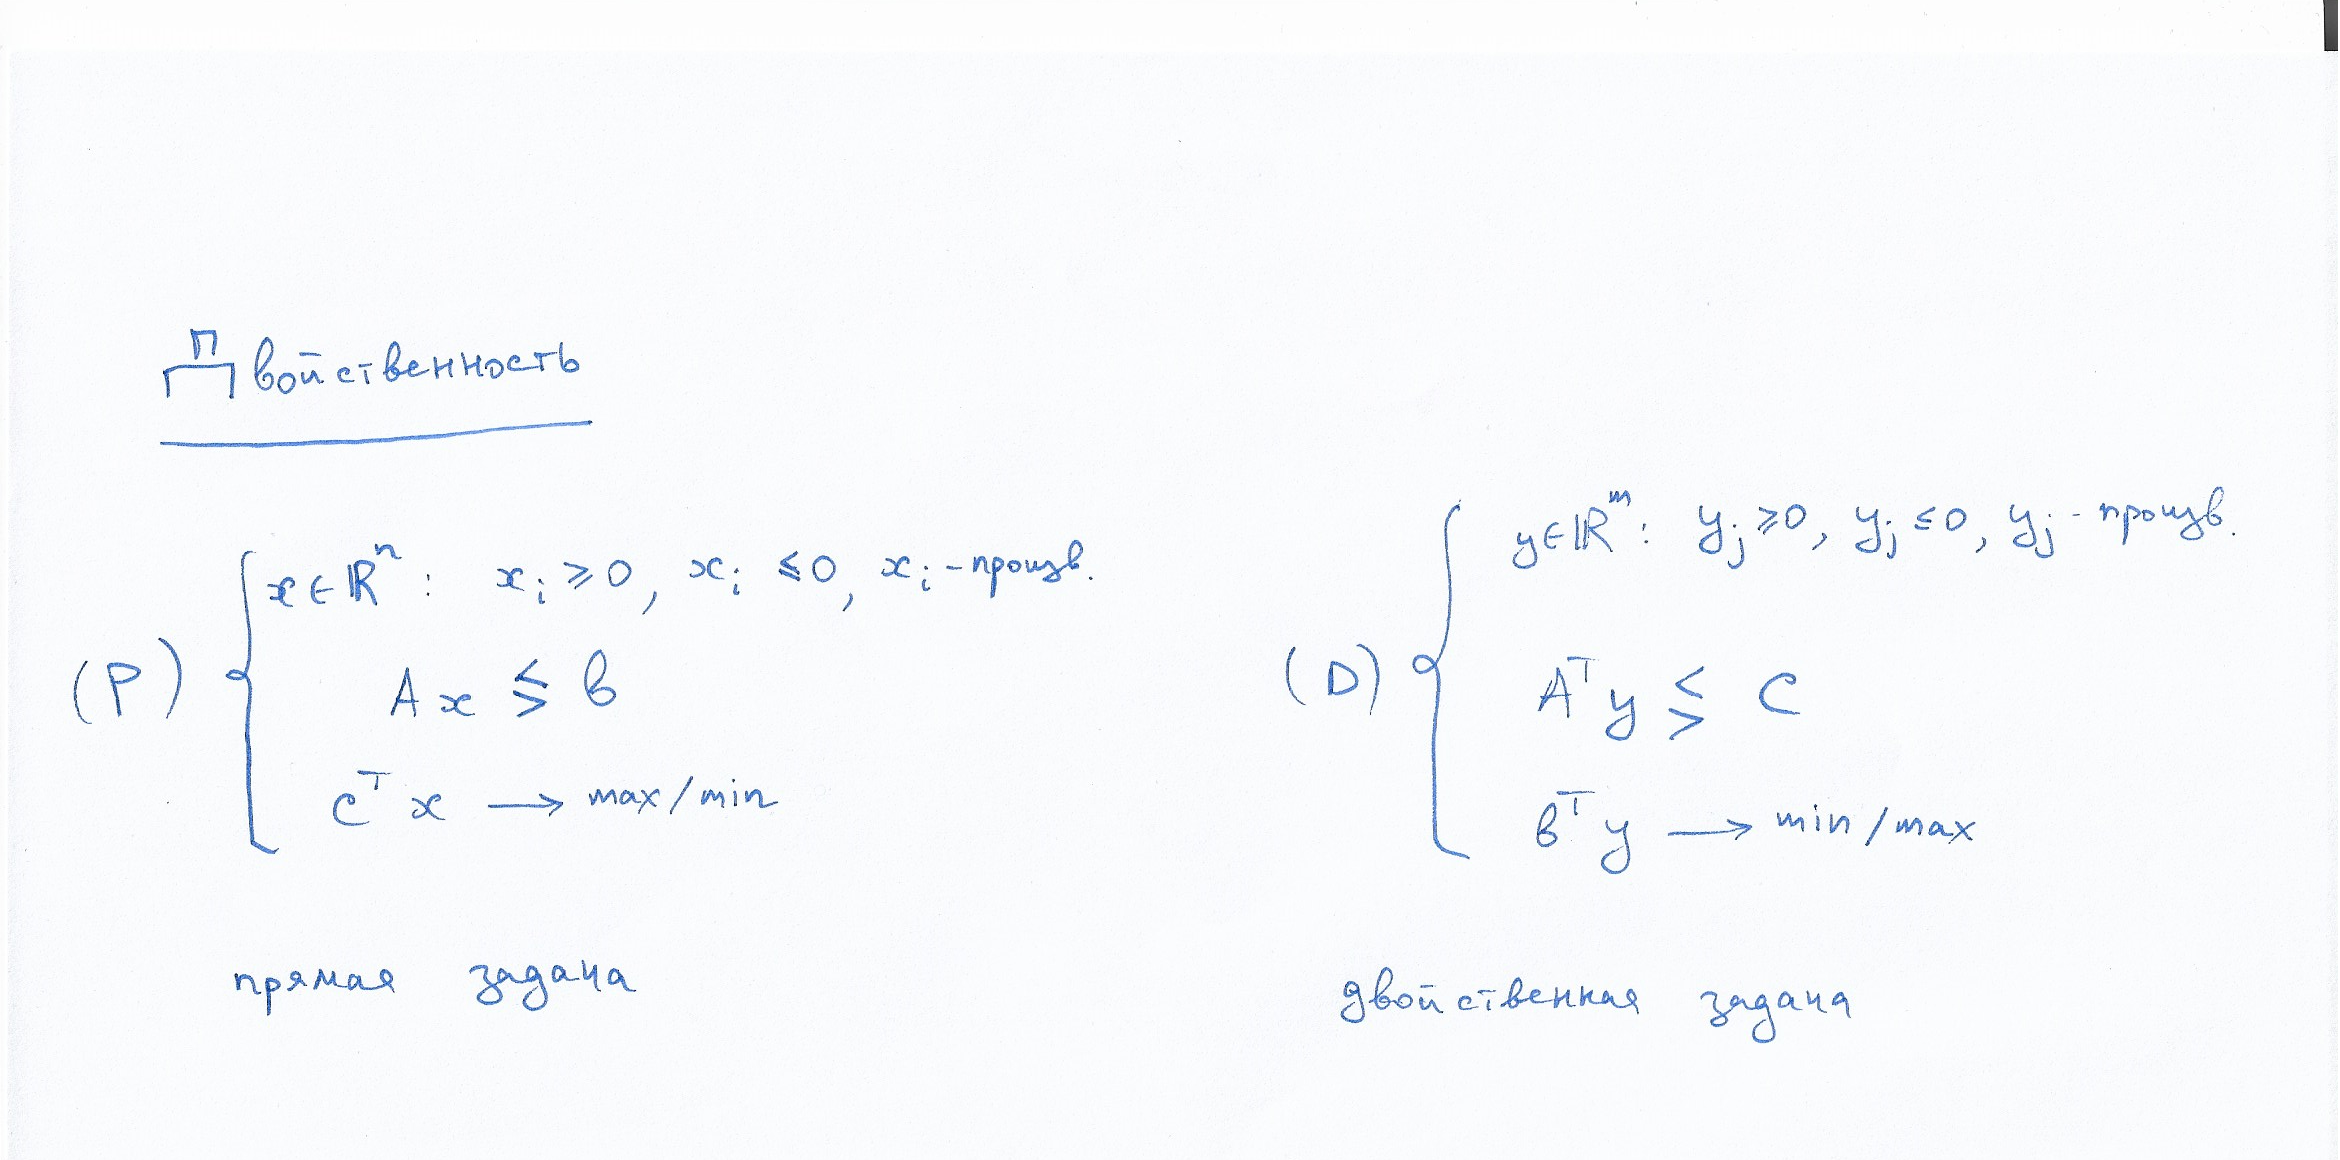 Двойственность
(P) { x ∈ ℝⁿ : xᵢ ⩾ 0, xᵢ ⩽ 0, xᵢ - произв.
Ax ≶ b
cᵀx → max/min
прямая задача
(D) { y ∈ ℝᵐ : yⱼ ⩾ 0, yⱼ ⩽ 0, yⱼ - произв.
Aᵀy ≶ c
bᵀy → min/max
двойственная задача